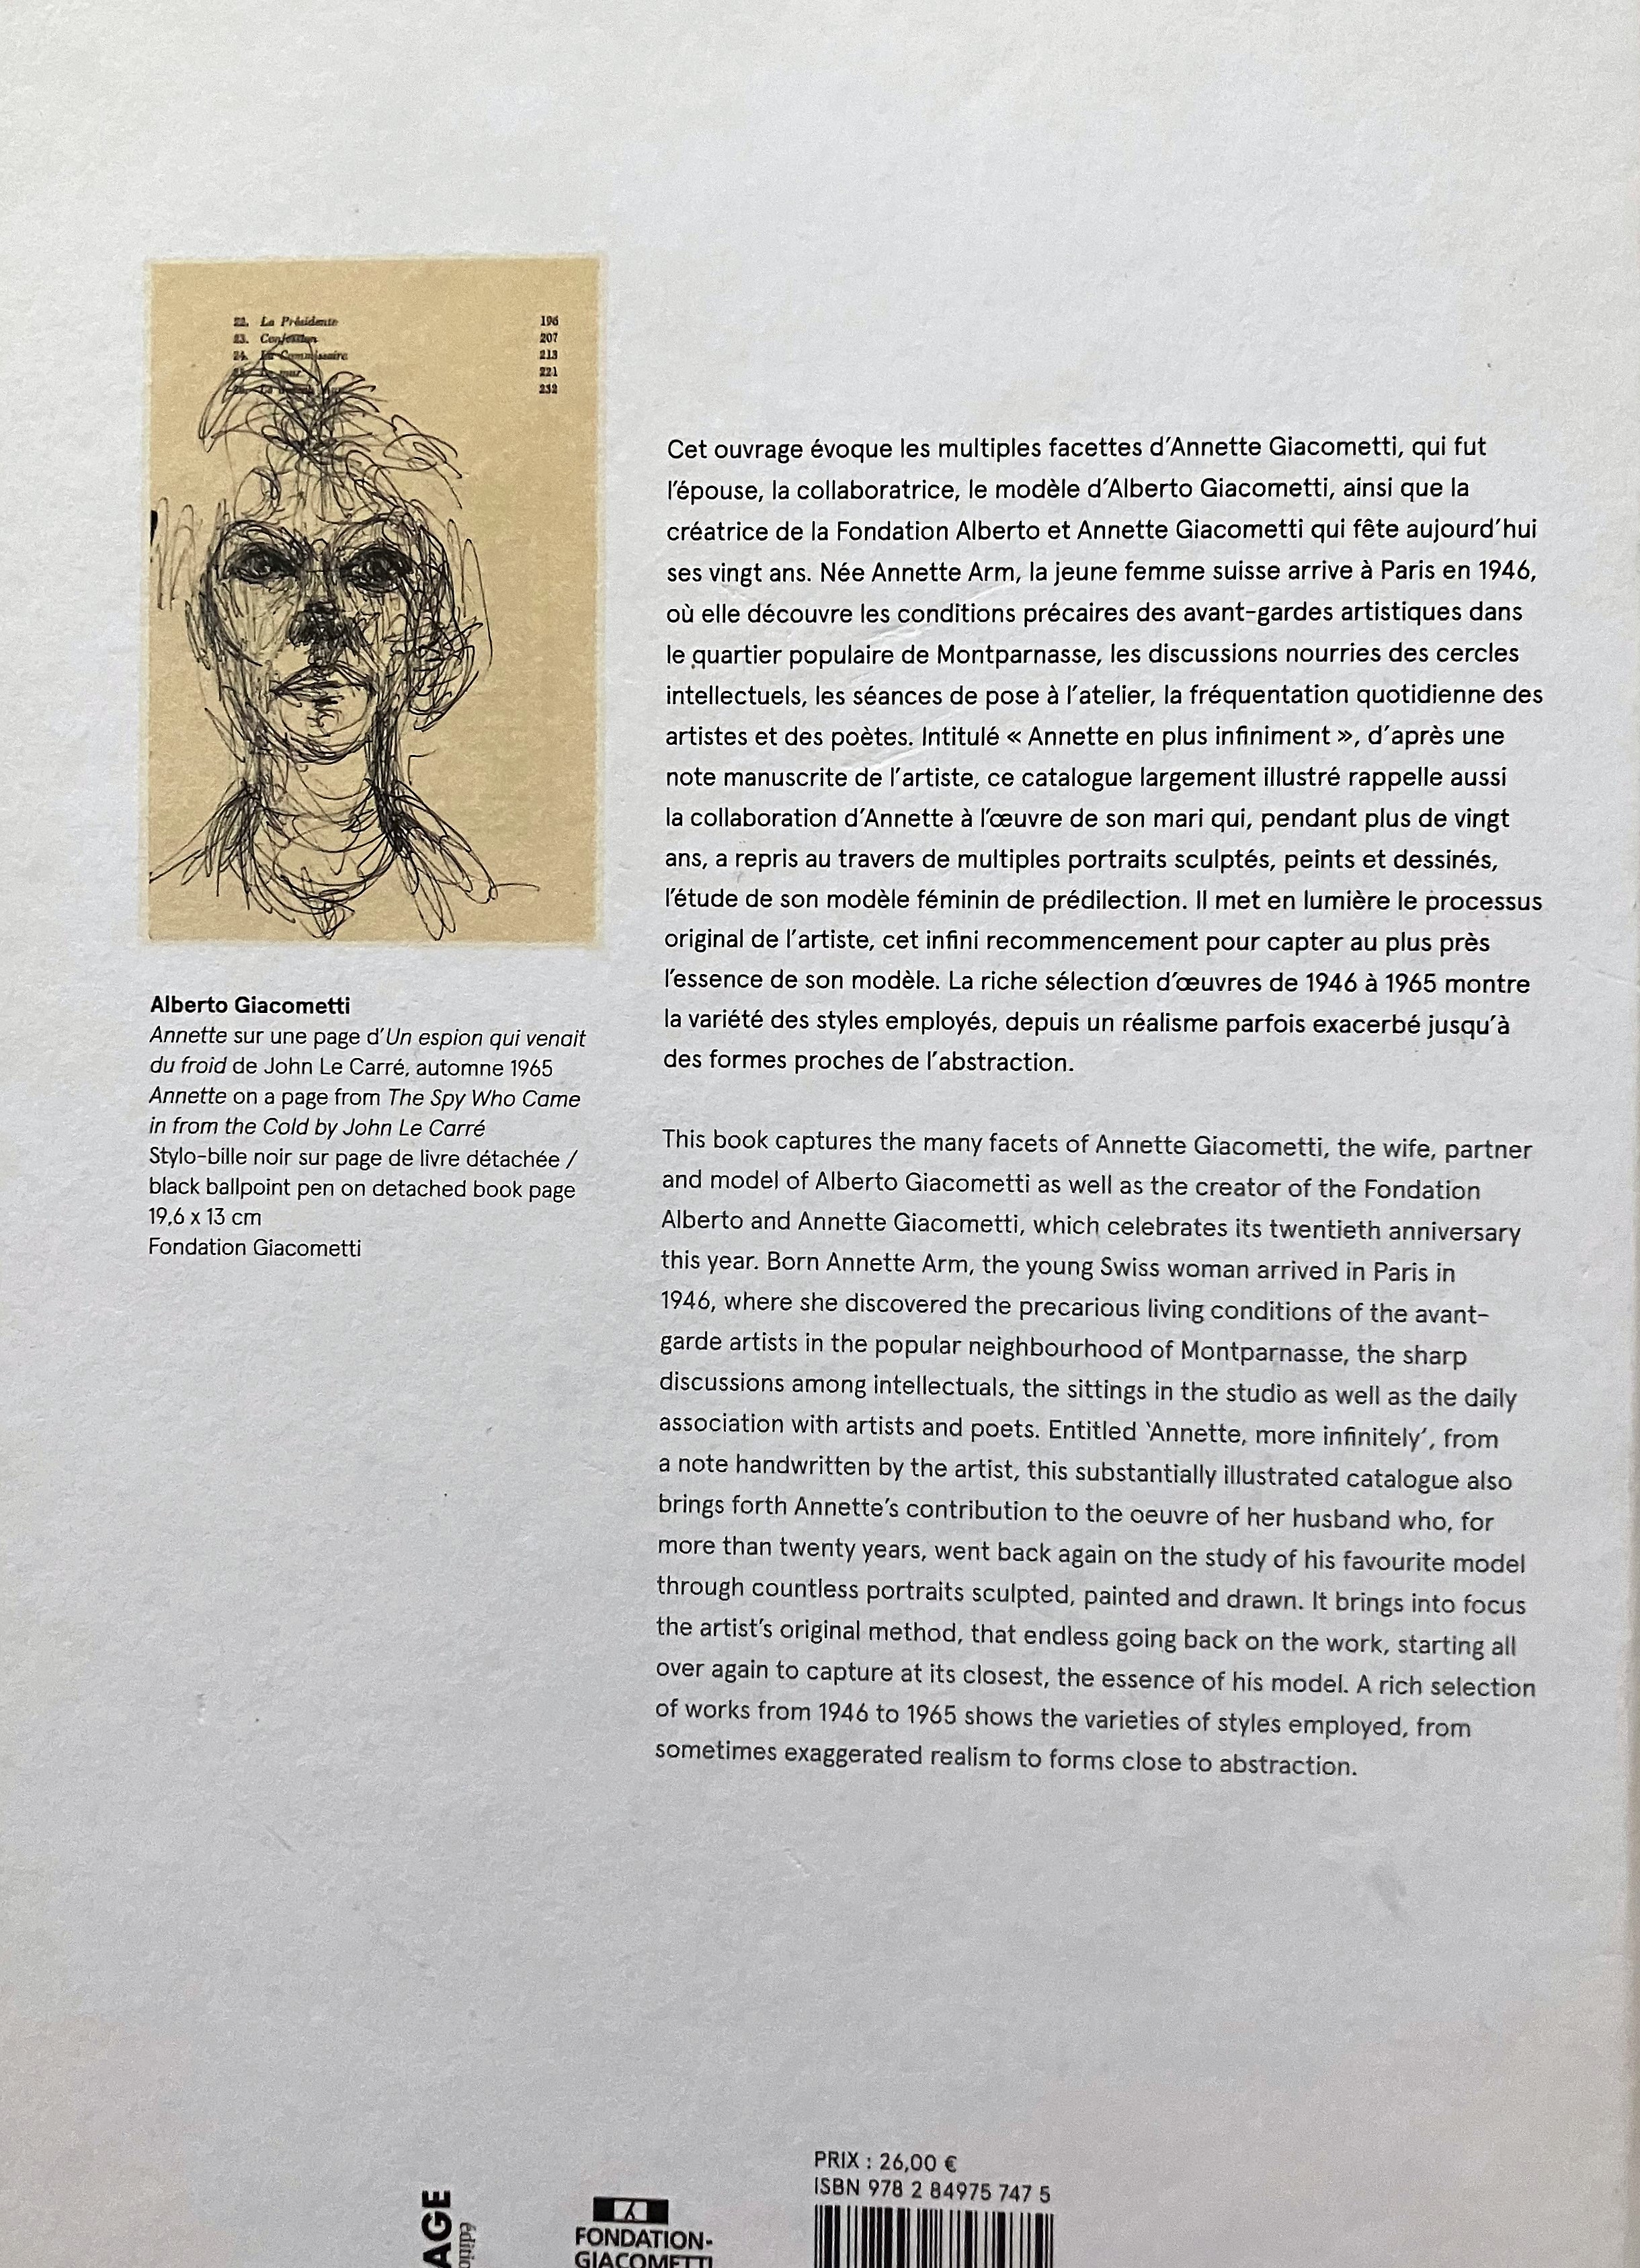 22. La Présidente 196
23. Confession 207
24. Le Commissaire 213
25. Le mur 221
232
Cet ouvrage évoque les multiples facettes d’Annette Giacometti, qui fut
l’épouse, la collaboratrice, le modèle d’Alberto Giacometti, ainsi que la
créatrice de la Fondation Alberto et Annette Giacometti qui fête aujourd’hui
ses vingt ans. Née Annette Arm, la jeune femme suisse arrive à Paris en 1946,
où elle découvre les conditions précaires des avant-gardes artistiques dans
le quartier populaire de Montparnasse, les discussions nourries des cercles
intellectuels, les séances de pose à l’atelier, la fréquentation quotidienne des
artistes et des poètes. Intitulé « Annette en plus infiniment », d’après une
note manuscrite de l’artiste, ce catalogue largement illustré rappelle aussi
la collaboration d’Annette à l’œuvre de son mari qui, pendant plus de vingt
ans, a repris au travers de multiples portraits sculptés, peints et dessinés,
l’étude de son modèle féminin de prédilection. Il met en lumière le processus
original de l’artiste, cet infini recommencement pour capter au plus près
l’essence de son modèle. La riche sélection d’œuvres de 1946 à 1965 montre
la variété des styles employés, depuis un réalisme parfois exacerbé jusqu’à
des formes proches de l’abstraction.
Alberto Giacometti
Annette sur une page d’Un espion qui venait
du froid de John Le Carré, automne 1965
Annette on a page from The Spy Who Came
in from the Cold by John Le Carré
Stylo-bille noir sur page de livre détachée /
black ballpoint pen on detached book page
19,6 x 13 cm
Fondation Giacometti
This book captures the many facets of Annette Giacometti, the wife, partner
and model of Alberto Giacometti as well as the creator of the Fondation
Alberto and Annette Giacometti, which celebrates its twentieth anniversary
this year. Born Annette Arm, the young Swiss woman arrived in Paris in
1946, where she discovered the precarious living conditions of the avant-
garde artists in the popular neighbourhood of Montparnasse, the sharp
discussions among intellectuals, the sittings in the studio as well as the daily
association with artists and poets. Entitled ‘Annette, more infinitely’, from
a note handwritten by the artist, this substantially illustrated catalogue also
brings forth Annette’s contribution to the oeuvre of her husband who, for
more than twenty years, went back again on the study of his favourite model
through countless portraits sculpted, painted and drawn. It brings into focus
the artist’s original method, that endless going back on the work, starting all
over again to capture at its closest, the essence of his model. A rich selection
of works from 1946 to 1965 shows the varieties of styles employed, from
sometimes exaggerated realism to forms close to abstraction.
PRIX : 26,00 €
ISBN 978 2 84975 747 5
AGE
éditio
FONDATION-
GIACOMETTI